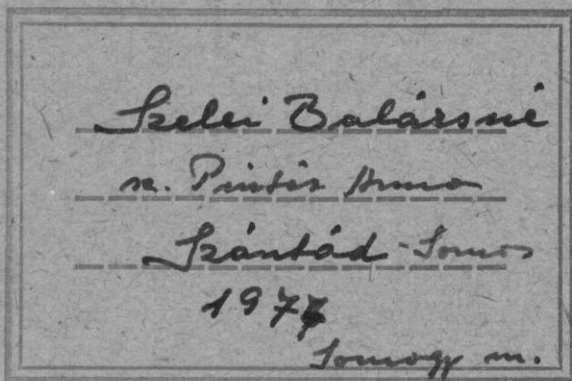 Szelei Balázsné
sz. Pintér Anna
Szántód - Somos
197
Somogy m.